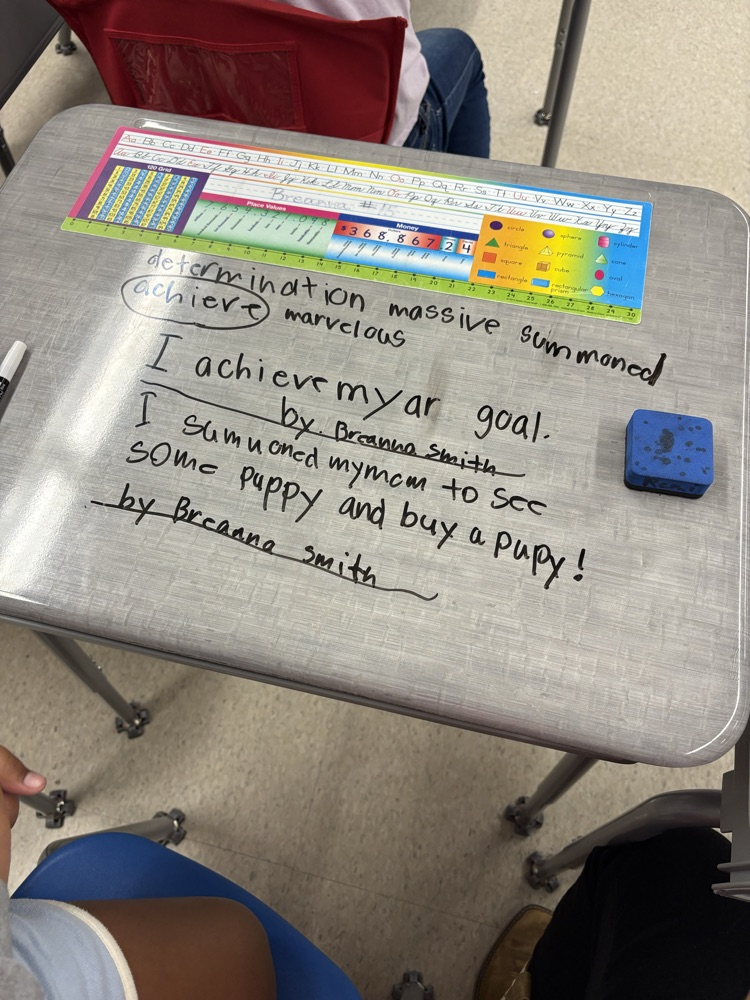 Aa Bb Cc Dd Ee Ff Gg Hh Ii Jj Kk Ll Mm Nn Oo Pp Qq Rr Ss Tt Uu Vv Ww Xx Yy Zz
Aa Bb Cc Dd Ee Ff Gg Hh Ii Jj Kk Ll Mm Nn Oo Pp Qq Rr Ss Tt Uu Vv Ww Xx Yy Zz
Breanna #
120 Grid
Place Values
Money
$368,867.24
circle sphere cylinder
triangle pyramid cone
square cube oval
rectangle rectangular prism hexagon
determination massive summoned
achieve marvelous
I achieve my ar goal.
by. Breanna smith
I sumuoned mymom to see
some puppy and buy a pupy!
by Breanna smith